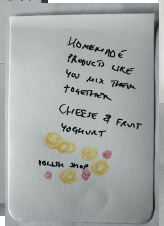 HOMEMADE
PRODUCTS LIKE
YOU MIX THEM
TOGETHER
CHEESE & FRUIT
YOGHURT
POLISH SHOP